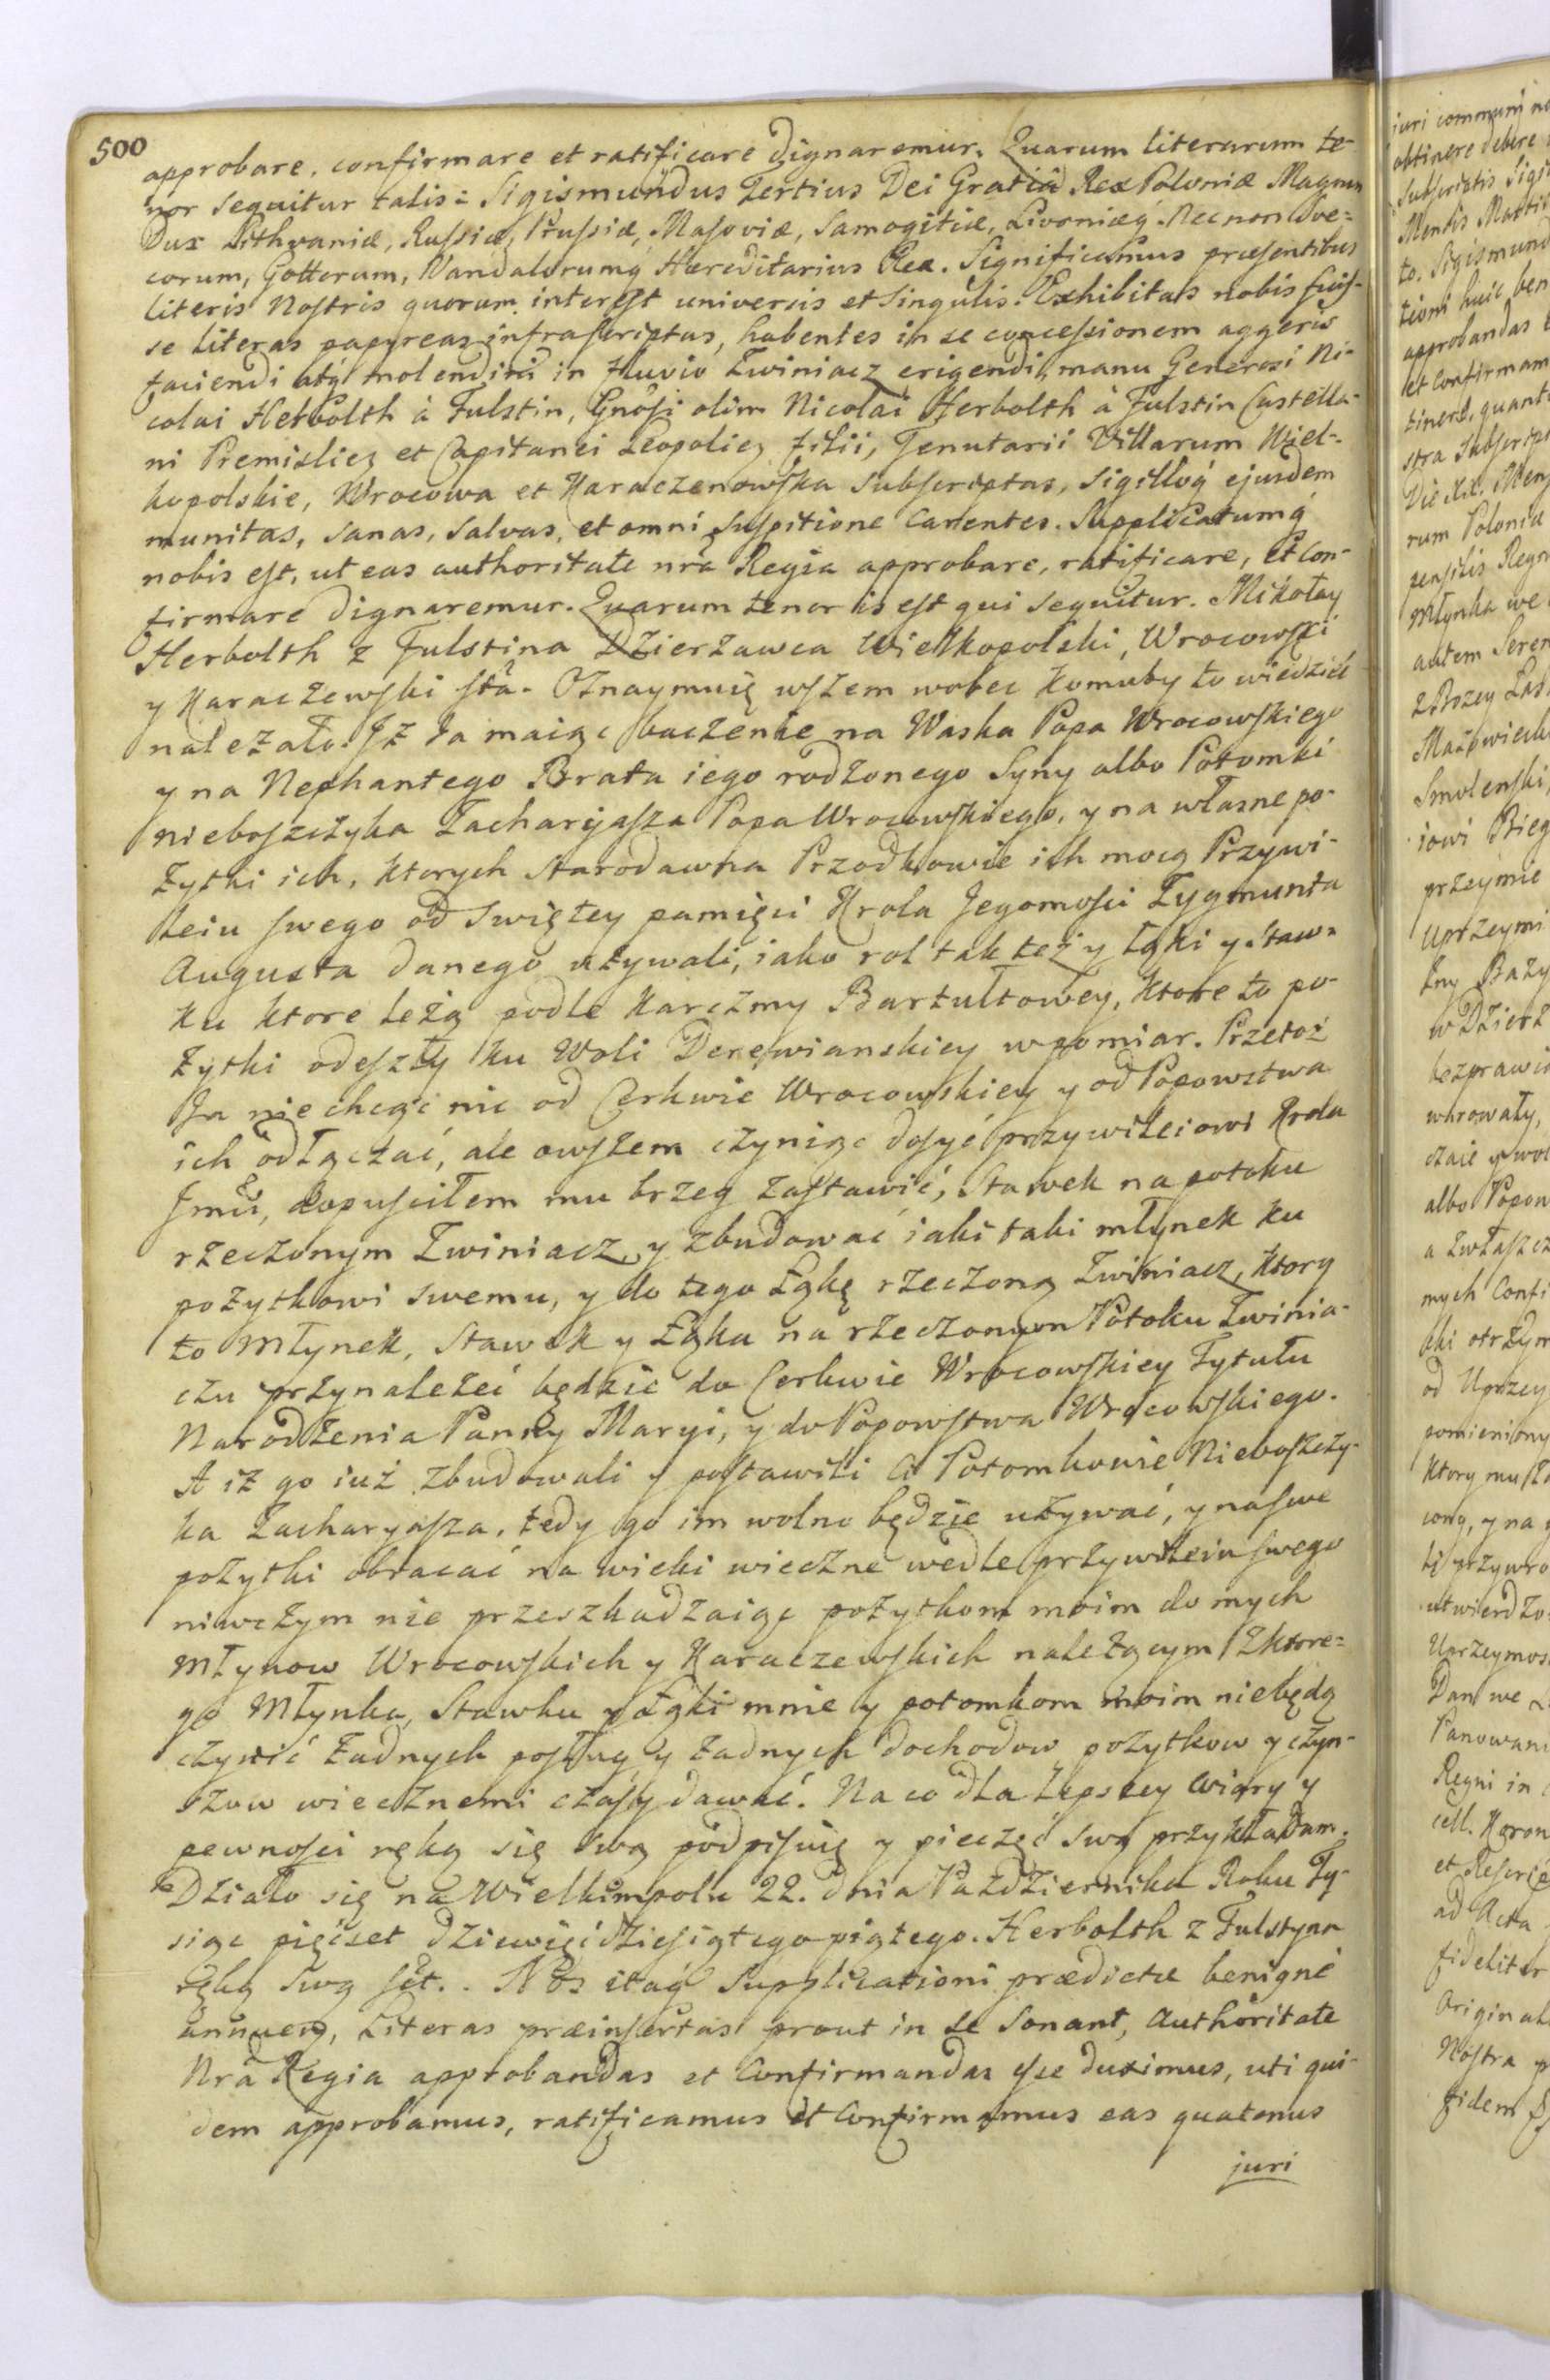 500
approbare, confirmare et ratificare dignaremur. Quarum literarum te-
nor sequitur talis: Sigismundus Tertius Dei Gratia Rex Poloniæ Magnus
Dux Lithvaniæ, Russiæ, Prussiæ, Masoviæ, Samogitiæ, Livoniæq́. Necnon Sve=
corum, Gottorum, Vandalorumq́ Hæreditarius Rex. Significamus præsentibus
literis Nostris quorum interest universis et singulis. Exhibitas nobis fuis-
se literas papyreas infrascriptas, habentes in se concessionem aggeris
faciendi atq́ molendini in fluvio Zwiniacz erigendi, manu Generosi Ni-
colai Herbolth à Fulstin, Gnosi olim Nicolai Herbolth à Fulstin Castella-
ni Premislien et Capitanei Leopolien filii, Tenutarii Villarum Wiel-
kopolskie, Wrocowa et Karaczenowska subscriptas, sigilloq́ ejusdem
munitas, sanas, salvas, et omni suspitione carentes. Supplicatumq́
nobis est, ut eas authoritate nrã Regia approbare, ratificare, et con-
firmare dignaremur. Quarum tenor is est qui sequitur. Mikołay
Herbolth z Fulstina Dzierżawca Wielkopolski, Wrocowski
y Karaczewski stã. Oznaymuię wszem wobec komuby to wiedzieć
należało. Iż Ja maiąc baczenie na Waska Popa Wrocowskiego
y na Nephantego Brata iego rodzonego Syny albo Potomki
nieboszczyka Zacharyasza Popa Wrocowskiego, y na własne po-
żytki ich, ktorych starodawna Przodkowie ich mocą Przywi-
leiu swego od swiętey pamięci Krola Jegomosci Zygmunta
Augusta danego używali, iako rol tak też y łąki y staw=
ku ktore leżą podle karczmy Bartułtowey, ktore to po-
żytki odeszły ku Woli Derewianskiey w pomiar. Przetoż
Ja nie chcąc nic od Cerkwie Wrocowskiey y od Popowstwa
ich odłączać, ale owszem czyniąc dosyć przywileiowi Krola
Jmci, dopuscilem mu brzeg zastawić, stawek na potoku
rzeczonym Zwiniacz y zbudować iaki taki młynek ku
pożytkowi swemu, y do tego łąkę rzeczoną Zwiniacz, ktory
to Młynek, Stawek y Łąka na rzeczonym Potoku Zwinia-
czu przynależeć będzie do Cerkwie Wrocowskiey Tytułu
Narodzenia Panny Maryi, y do Popowstwa Wrocowskiego.
A iż go iuż zbudowali y postawili ci Potomkowie Nieboszczy-
ka Zacharyasza, tedy go im wolno będzie używać, y na swe
pożytki obracać na wieki wieczne wedle przywileiu swego
niwczym nie przeszkadzaiąc pożytkom moim do mych
Młynow Wrocowskich y Karaczewskich należącym z ktore=
go Młynka, Stawku y Łąki mnie y potomkom moim niebędą
czynić żadnych posług, y żadnych dochodow pożytkow y czyn-
szow wiecznemi czasy dawać. Na co dla lepszey wiary y
pewnosci ręką się swą podpisuię y pieczęć swą przykładam.
Działo się na Wielkimpolu 22. dnia Pazdziernika Roku Ty-
siąc pięćset dziewięćdziesiątego piątego. Herbolth z Fulstyna
ręką swą sst. . Nos itaq́ supplicationi prædictæ benigné
annuen, Literas præinsertas prout in se sonant, authoritate
Nrã Regia approbandas et confirmandas esse duximus, uti qui-
dem approbamus, ratificamus et confirmamus eas quatenus
juri